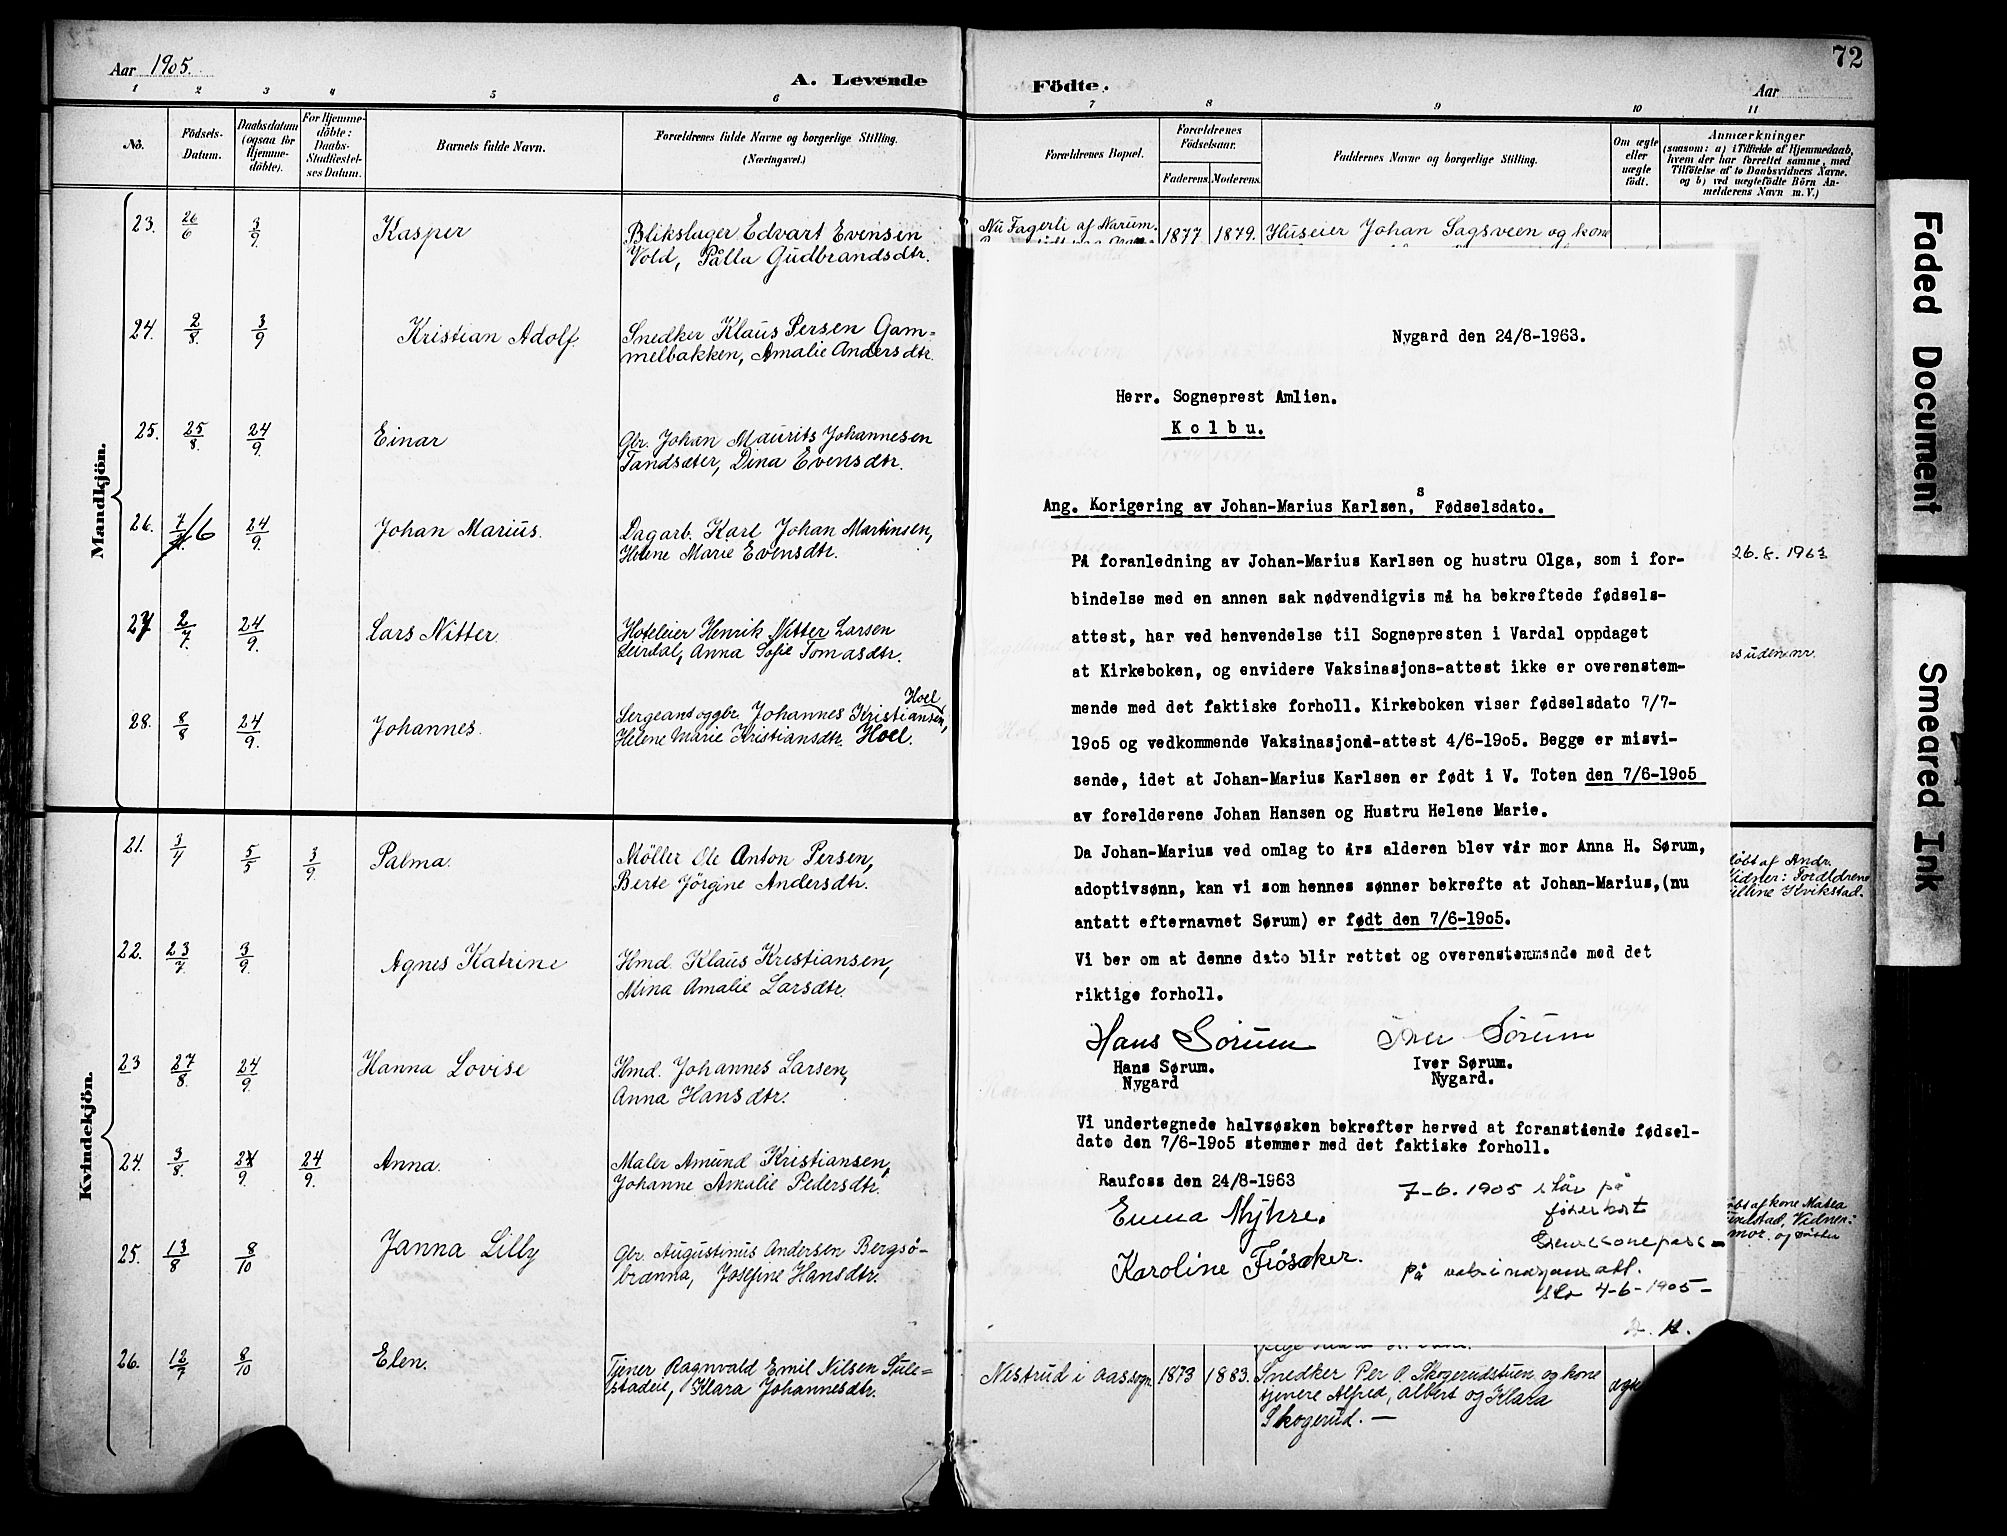 Aar 1905.
A. Levende
Födte.
Aar
72
1 2 3 4 5 6 7 8 9 10 11
No.
Födsels-
Datum.
Daabsdatum
(ogsaa for
Hjemme-
döbte).
For Hjemme-
döbte:
Daabs-
Stadfæstel-
ses Datum.
Barnets fulde Navn.
Forældrenes fulde Navne og borgerlige Stilling.
(Næringsvei.)
Forældrenes Bopæl.
Forældrenes
Födselsaar.
Faderens. Moderens.
Faddernes Navne og borgerlige Stilling.
Om ægte
eller
uægte
födt.
Anmærkninger
(saasom: a) i Tilfælde af Hjemmedaab,
hvem der har forrettet samme, med
Tilföielse af to Daabsvidners Navne.
og b) ved uægtefödte Börn An-
melderens Navn m. V.)
Mandkjön.
23. 26/6 3/9. Kasper Blikslager Edvart Evensen
Vold, Pålla Gudbrandsdtr.
Nu Fagerli af Narum. 1877 1879. Huseier Johan Sagsveen og kone
24. 2/8. 3/9 Kristian Adolf. Snedker Klaus Persen Gam-
melbakken, Amalie Andersdtr.
25. 25/8 24/9. Einar Gbr. Johan Maurits Johannesen
Tandsæter, Dina Evensdtr.
26. 7/6 24/9. Johan Marius. Dagarb. Karl Johan Martinsen,
Helene Marie Evensdtr.
27 2/7. 24/9. Lars Nitter. Hoteleier Henrik Nitter Larsen
Leirdal, Anna Sofie Tomasdtr.
28. 8/8 24/9. Johannes. Sergeant og gbr. Johannes Kristiansen, Hoel
Helene Marie Kristiansdtr. Hoel.
Kvindekjön.
21. 3/4 5/5 3/9. Palma. Möller Ole Anton Persen,
Berte Jörgine Andersdtr.
22. 23/7 3/9. Agnes Katrine Hmd. Klaus Kristiansen,
Mina Amalie Larsdtr.
23 27/8. 24/9. Hanna Lovise Hmd. Johannes Larsen,
Anna Hansdtr.
24. 3/8. 24/9 24/9. Anna. Maler Amund Kristiansen,
Johanne Amalie Pedersdtr.
25. 13/8 8/10 Janna Lilly Gbr Augustinus Andersen Bergsö-
brænna, Josefine Hansdtr.
26. 12/7 8/10 Elen. Tjener Ragnvald Emil Nilsen
Klara Johannesdtr.
Nestrud i aassogn 1873 1883. Snedker Per O. Skogerudstuen og kone
tjenere Alfred, Albert og Klara
Skogerud. —
Nygard den 24/8-1963.
Herr. Sogneprest Amlien.
Kolbu.
Ang. Korigering av Johan-Marius Karlsen, s Fødselsdato.
På foranledning av Johan-Marius Karlsen og hustru Olga, som i for-
bindelse med en annen sak nødvendigvis må ha bekreftede fødsels-
attest, har ved henvendelse til Sognepresten i Vardal oppdaget
at Kirkeboken, og envidere Vaksinasjons-attest ikke er overenstem-
mende med det faktiske forholl. Kirkeboken viser fødselsdato 7/7-
19o5 og vedkommende Vaksinasjons-attest 4/6-19o5. Begge er misvi-
sende, idet at Johan-Marius Karlsen er født i V. Toten den 7/6-19o5
av forelderene Johan Hansen og Hustru Helene Marie.
Da Johan-Marius ved omlag to års alderen blev vår mor Anna H. Sørum,
adoptivsønn, kan vi som hennes sønner bekrefte at Johan-Marius,(nu
antatt efternavnet Sørum) er født den 7/6-19o5.
Vi ber om at denne dato blir rettet og overenstemmende med det
riktige forholl.
Hans Sørum Iver Sørum
Hans Sørum. Iver Sørum.
Nygard Nygard.
Vi undertegnede halvsøsken bekrefter herved at foranstående fødsel-
dato den 7/6-19o5 stemmer med det faktiske forholl.
Raufoss den 24/8-1963
Emma Myhre.
Karoline Frösaker.
7-6.1905 står på
førerkort
Grensesonepass-
på vaksinasjons att.
sto 4-6-1905-
26.8.1963
uden nr.
döbt af Andr.
Vidner: Forældrene
Kvikstad.
döbt af kone Matea
Vidner:
mor og söster
Faded Document
Smeared Ink